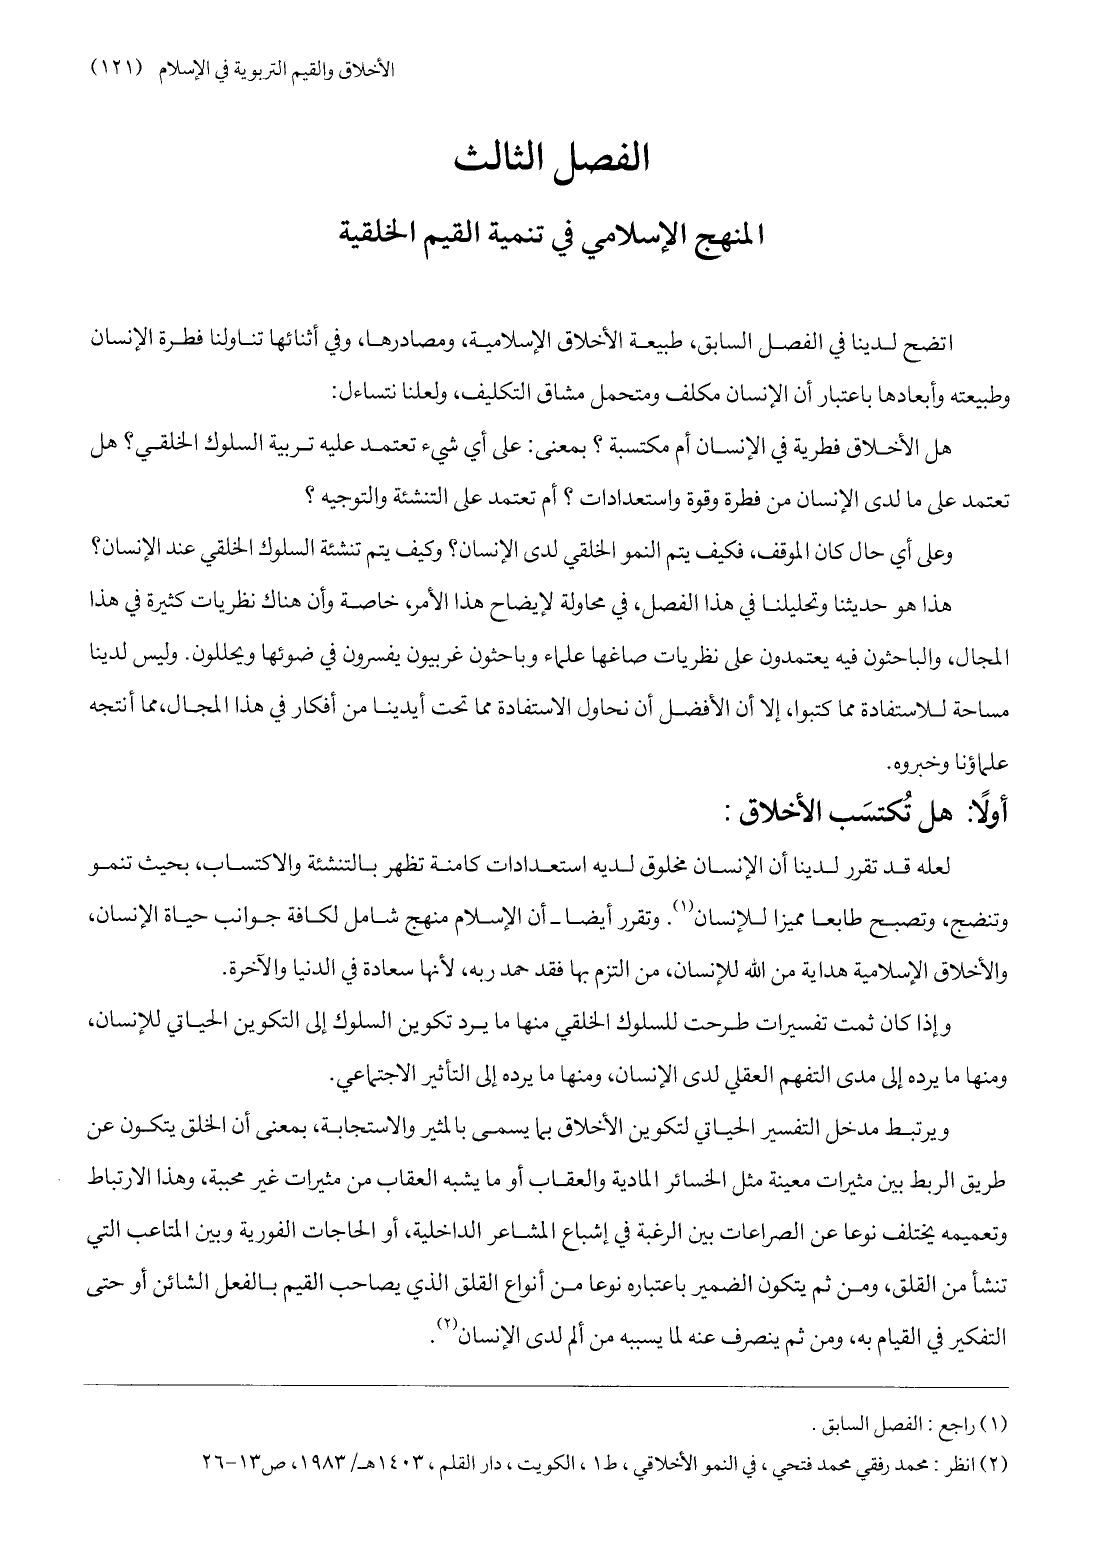 الأخلاق والقيم التربوية في الإسلام (١٢١)
الفصل الثالث
المنهج الإسلامي في تنمية القيم الخلقية
اتضح لدينا في الفصل السابق، طبيعة الأخلاق الإسلامية، ومصادرها، وفي أثنائها تناولنا فطرة الإنسان
وطبيعته وأبعادها باعتبار أن الإنسان مكلف ومتحمل مشاق التكليف، ولعلنا نتساءل:
هل الأخلاق فطرية في الإنسان أم مكتسبة ؟ بمعنى: على أي شيء تعتمد عليه تربية السلوك الخلقي؟ هل
تعتمد على ما لدى الإنسان من فطرة وقوة واستعدادات ؟ أم تعتمد على التنشئة والتوجيه ؟
وعلى أي حال كان الموقف، فكيف يتم النمو الخلقي لدى الإنسان؟ وكيف يتم تنشئة السلوك الخلقي عند الإنسان؟
هذا هو حديثنا وتحليلنا في هذا الفصل، في محاولة لإيضاح هذا الأمر، خاصة وأن هناك نظريات كثيرة في هذا
المجال، والباحثون فيه يعتمدون على نظريات صاغها علماء وباحثون غربيون يفسرون في ضوئها ويحللون. وليس لدينا
مساحة للاستفادة مما كتبوا، إلا أن الأفضل أن نحاول الاستفادة مما تحت أيدينا من أفكار في هذا المجال،مما أنتجه
علماؤنا وخبروه.
أولًا: هل تُكتسَب الأخلاق :
لعله قد تقرر لدينا أن الإنسان مخلوق لديه استعدادات كامنة تظهر بالتنشئة والاكتساب، بحيث تنمو
وتنضج، وتصبح طابعا مميزا للإنسان(١). وتقرر أيضا - أن الإسلام منهج شامل لكافة جوانب حياة الإنسان،
والأخلاق الإسلامية هداية من الله للإنسان، من التزم بها فقد حمد ربه، لأنها سعادة في الدنيا والآخرة.
وإذا كان ثمت تفسيرات طرحت للسلوك الخلقي منها ما يرد تكوين السلوك إلى التكوين الحياتي للإنسان،
ومنها ما يرده إلى مدى التفهم العقلي لدى الإنسان، ومنها ما يرده إلى التأثير الاجتماعي.
ويرتبط مدخل التفسير الحياتي لتكوين الأخلاق بما يسمى بالمثير والاستجابة، بمعنى أن الخلق يتكون عن
طريق الربط بين مثيرات معينة مثل الخسائر المادية والعقاب أو ما يشبه العقاب من مثيرات غير محببة، وهذا الارتباط
وتعميمه يختلف نوعا عن الصراعات بين الرغبة في إشباع المشاعر الداخلية، أو الحاجات الفورية وبين المتاعب التي
تنشأ من القلق، ومن ثم يتكون الضمير باعتباره نوعا من أنواع القلق الذي يصاحب القيم بالفعل الشائن أو حتى
التفكير في القيام به، ومن ثم ينصرف عنه لما يسببه من ألم لدى الإنسان(٢).
(١) راجع : الفصل السابق .
(٢) انظر : محمد رفقي محمد فتحي ، في النمو الأخلاقي ، ط١ ، الكويت ، دار القلم ، ١٤٠٣هـ/ ١٩٨٣، ص١٣-٢٦